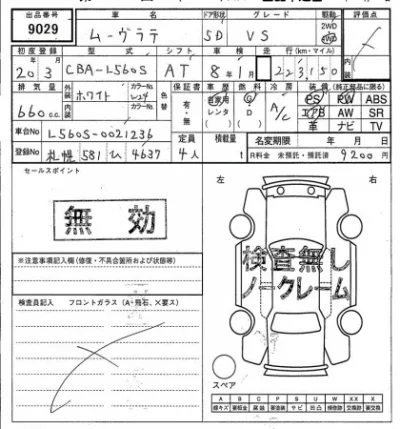 出品番号 車名 ドア形状 グレード 駆動 評価点
9029 ムーヴラテ 5D VS 2WD 4WD
初度登録 型式 シフト 車検 走行(km・マイル)
20年3月 CBA-L560S AT 8年1月 223,150
排気量 外装 ホワイト カラーNo. W24 色替 保証書 車歴 燃料 冷房 装備(純正部品に限る)
660cc 内装 カラーNo. 有・無 自家用 レンタ ( ) G D ( ) A/C PS PW ABS
エアB AW SR
革 ナビ TV
車台No L560S-0021236 定員 積載量 名変期限 年 月 日
登録No 札幌 581 ひ 4637 4人 t R料金 未預託・預託済 9200円
セールスポイント
無効
※注意事項記入欄(修復・不具合箇所および状態等)
検査員記入 フロントガラス(A・飛石、×要ス)
左 右
検査無し
ノークレーム
スペア
A B C P S U W X XX